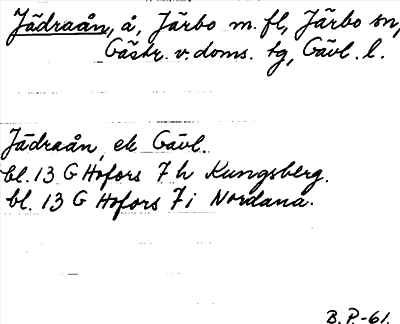 Jädraån, å, Järbo m.fl, Järbo sn,
Gästr. v. doms. tg, Gävl. l.
Jädraån, ek Gävl.
bl. 13 G Hofors 7 h Kungsberg.
bl. 13 G Hofors 7 i Nordana.
B.P.-61.